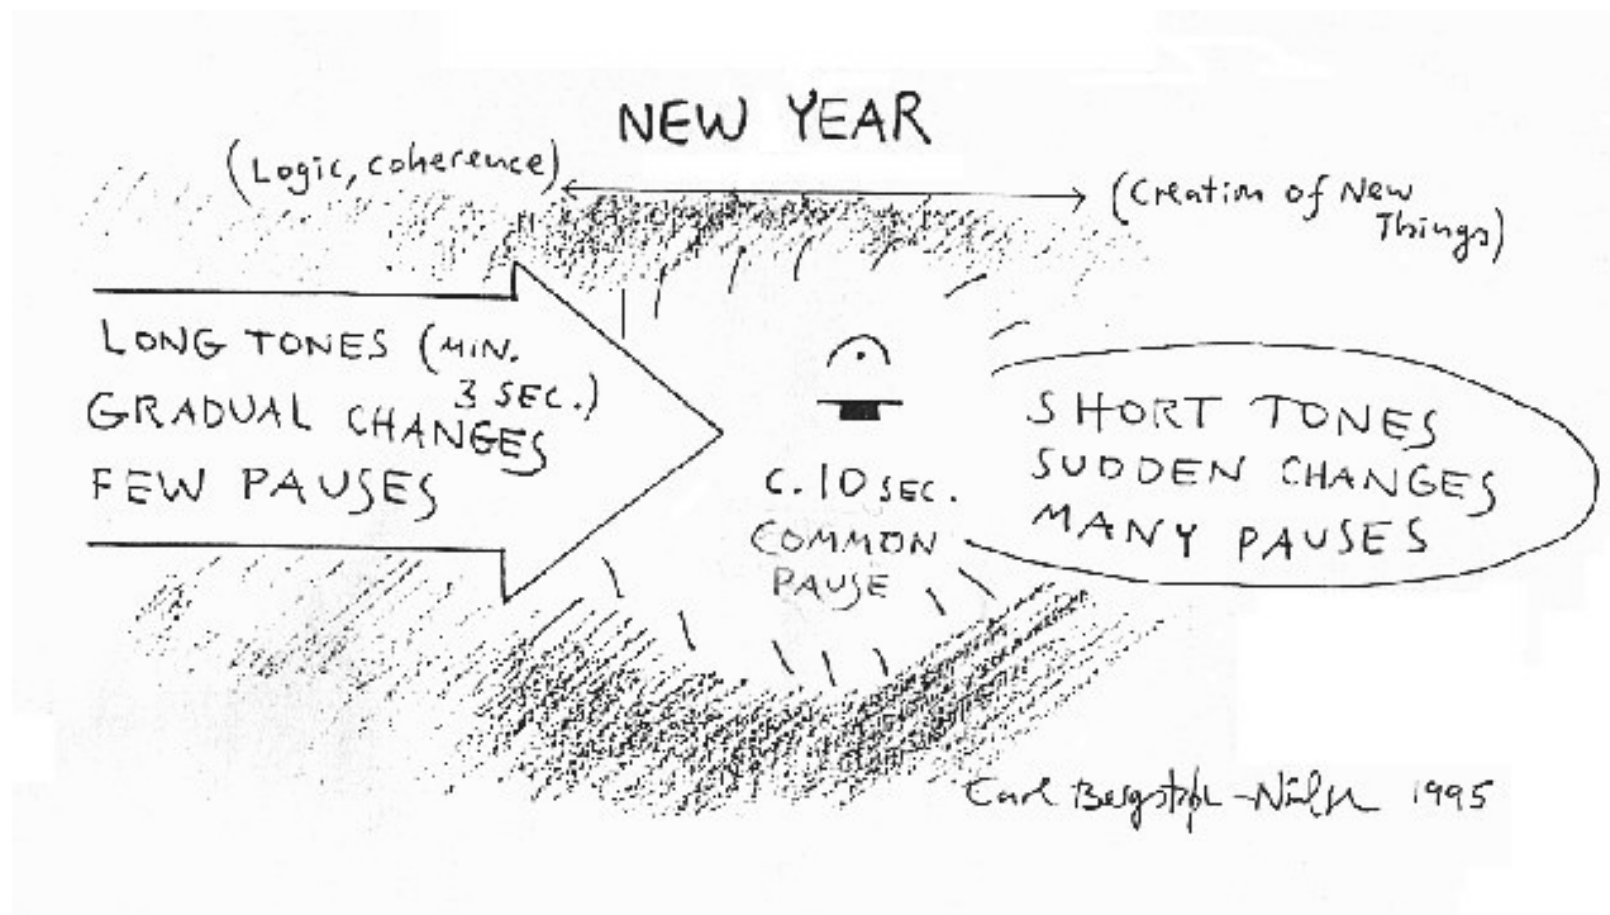 NEW YEAR
(Logic, coherence)
(Creation of New
Things)
LONG TONES (MIN.
3 SEC.)
GRADUAL CHANGES
FEW PAUSES
C. 10 SEC.
COMMON
PAUSE
SHORT TONES
SUDDEN CHANGES
MANY PAUSES
Carl Bergstrøm-Nielsen 1995